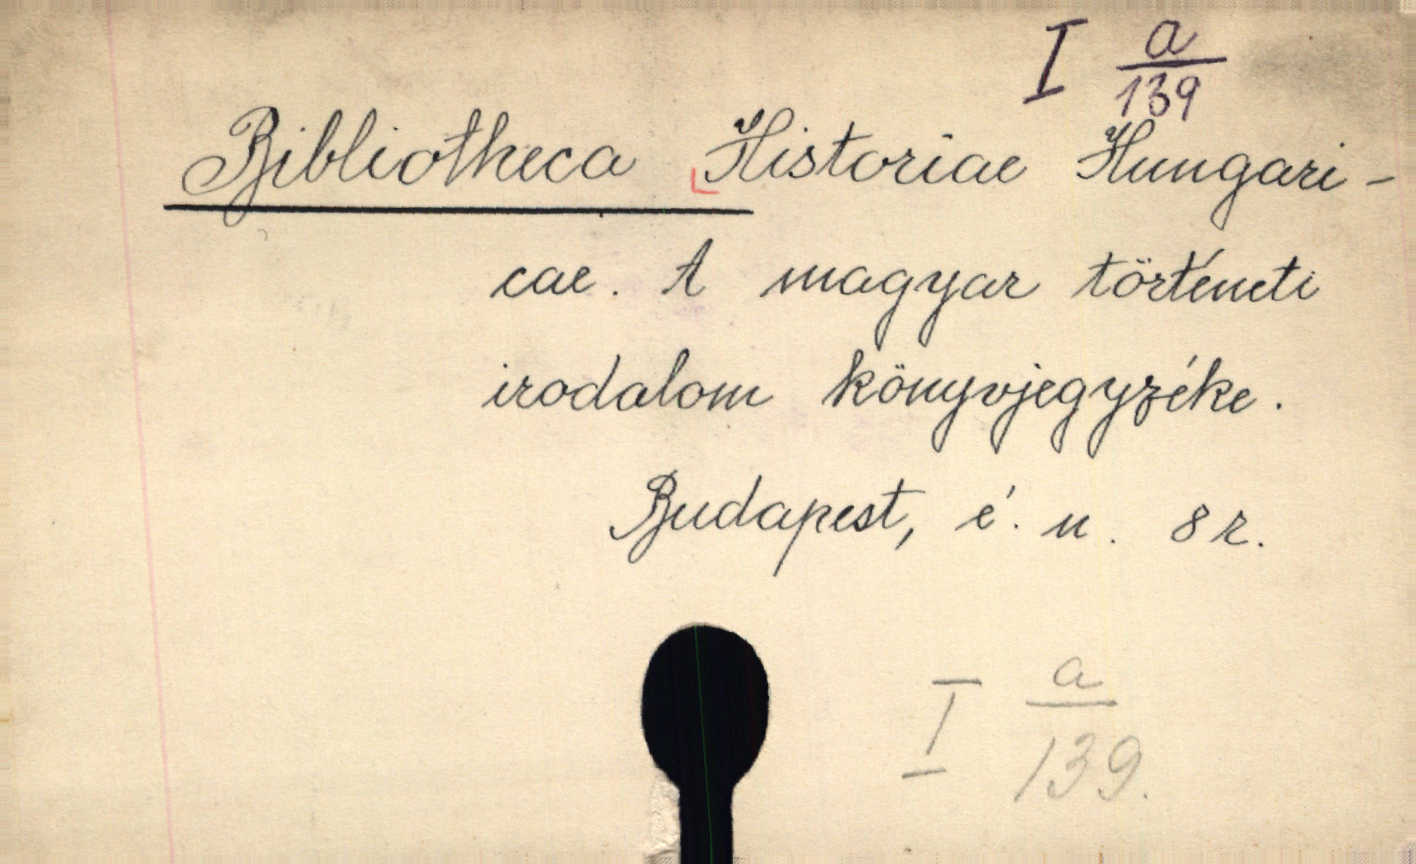 I a/139
Bibliotheca Historiae Hungari-
cae. A magyar történeti
irodalom könyvjegyzéke.
Budapest, é. n. 8r.
I a/139.